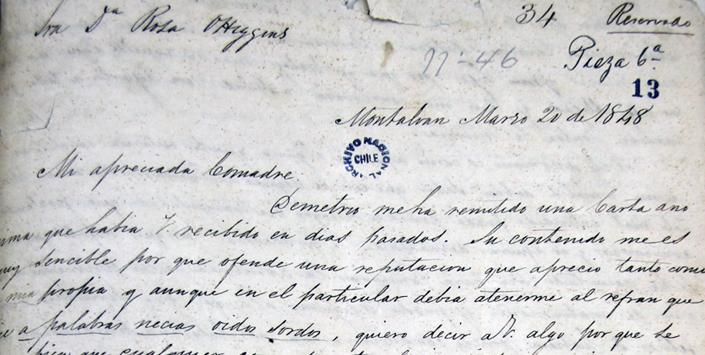 Sra Dª Rosa O'Higgins
34
Reservado
N: 46
Pieza 6ª
13
Montalvan Marzo 20 de 1848
ARCHIVO NACIONAL
CHILE
Mi apreciada Comadre.
Demetrio me ha remitido una Carta ano
nima que habia V. recibido en dias pasados. Su contenido me es
muy sencible por que ofende una reputacion que aprecio tanto como
mia propia y aunque en el particular debia atenerme al refran que
a palabras necias oidos sordos, quiero decir a V. algo por que se
bien que cualquier